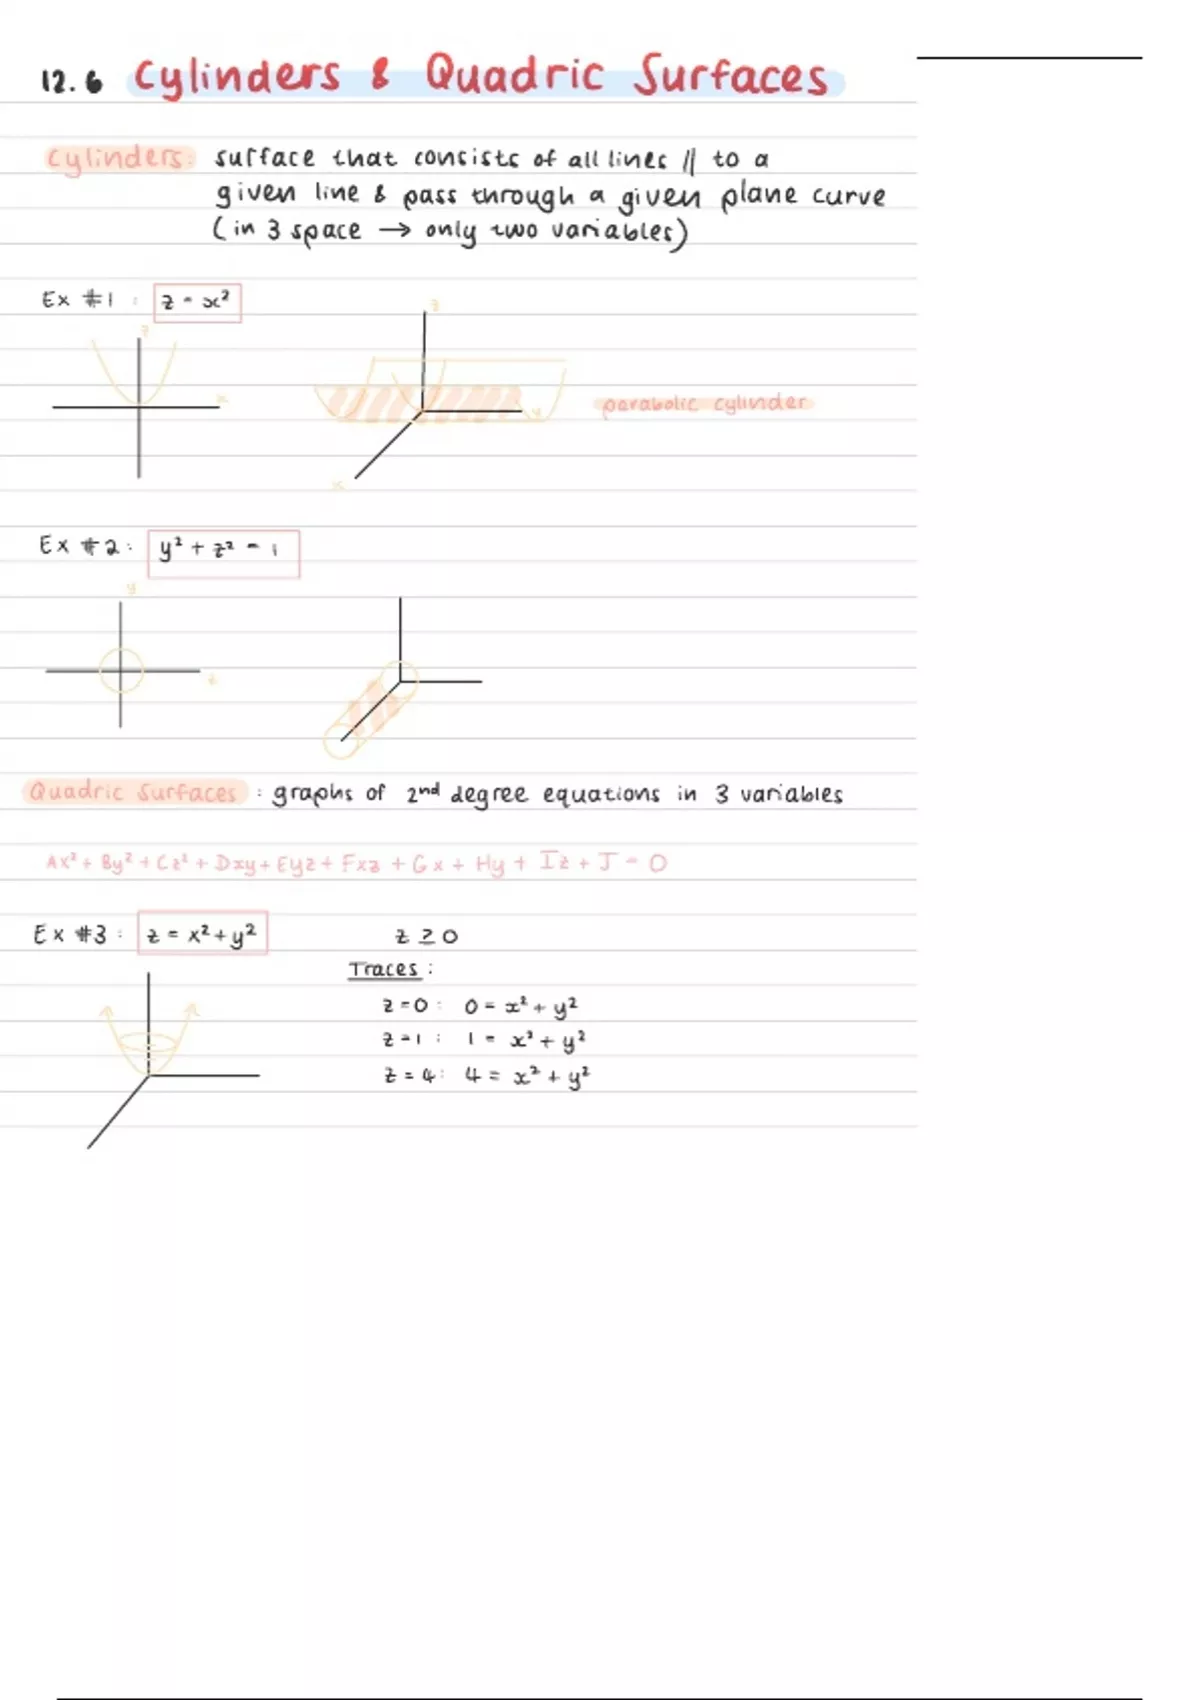 12.6 Cylinders & Quadric Surfaces
Cylinders: surface that consists of all lines // to a
given line & pass through a given plane curve
(in 3 space → only two variables)
Ex #1 : z = x²
z
x
z
y
x
parabolic cylinder
Ex #2: y² + z² = 1
y
z
Quadric Surfaces : graphs of 2nd degree equations in 3 variables
Ax² + By² + Cz² + Dxy + Eyz + Fxz + Gx + Hy + Iz + J = 0
Ex #3 : z = x² + y²
z ≥ 0
Traces :
z = 0 : 0 = x² + y²
z = 1 : 1 = x² + y²
z = 4 : 4 = x² + y²